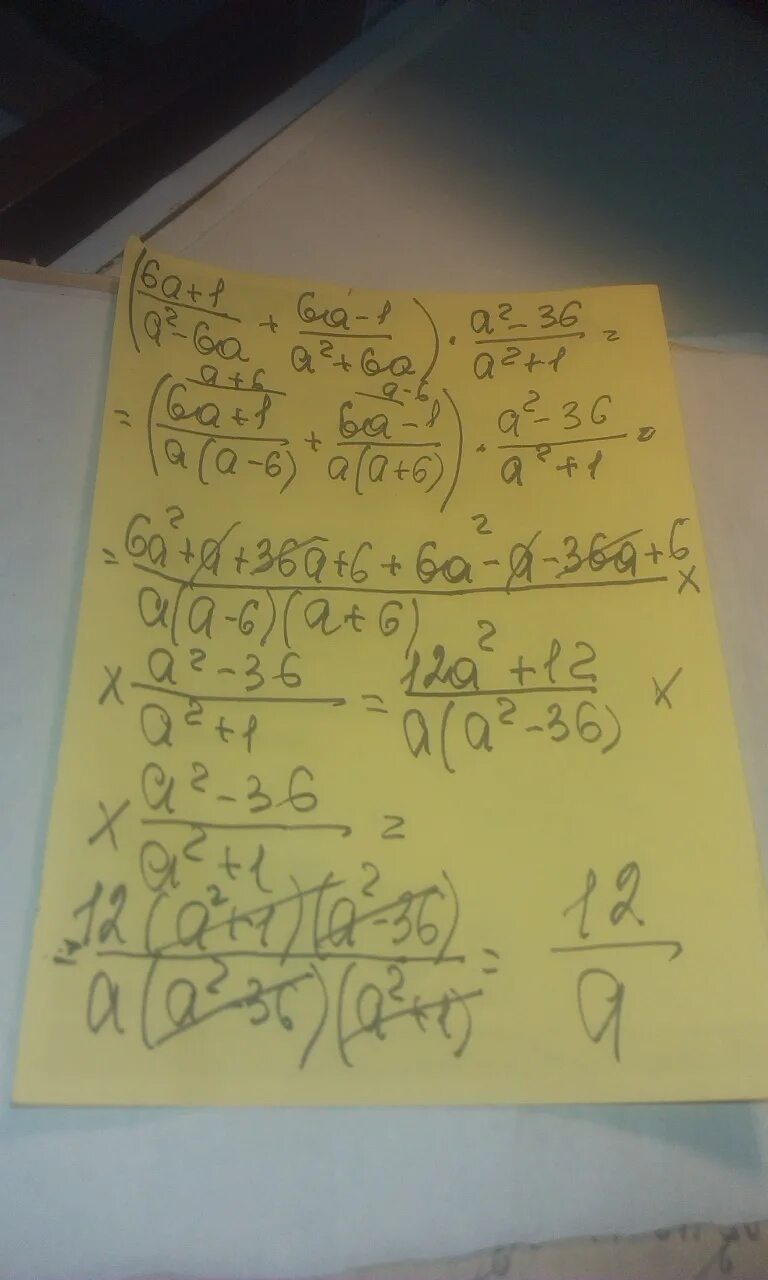 (6a+1/a²-6a + 6a-1/a²+6a) · a²-36/a²+1 =
a+6 a-6
= (6a+1/a(a-6) + 6a-1/a(a+6)) · a²-36/a²+1 =
= 6a²+a+36a+6+6a²-a-36a+6/a(a-6)(a+6) ×
× a²-36/a²+1 = 12a²+12/a(a²-36) ×
× a²-36/a²+1 =
12(a²+1)(a²-36)/a(a²-36)(a²+1) = 12/a